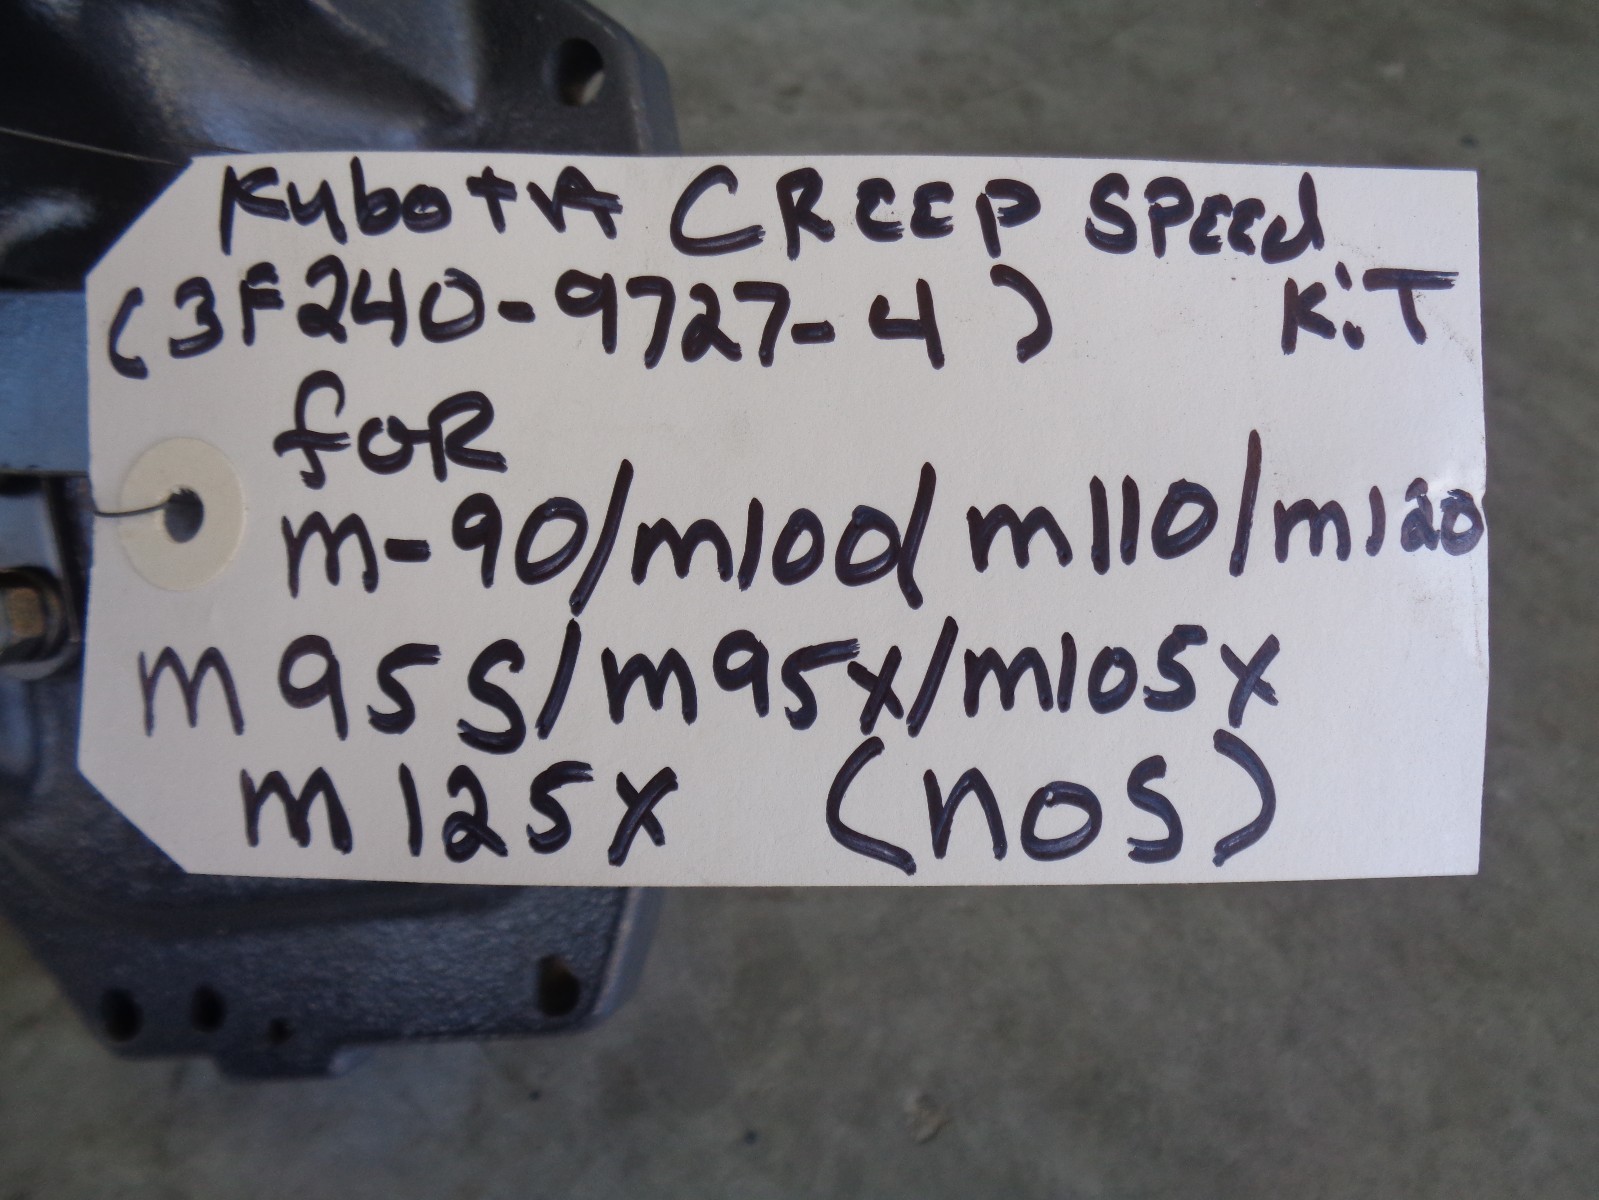 KuboTA CREEP SPEEd
(3F240-9727-4) KiT
foR
m-90/m100/m110/m120
m95S/m95x/m105x
m125x (nos)